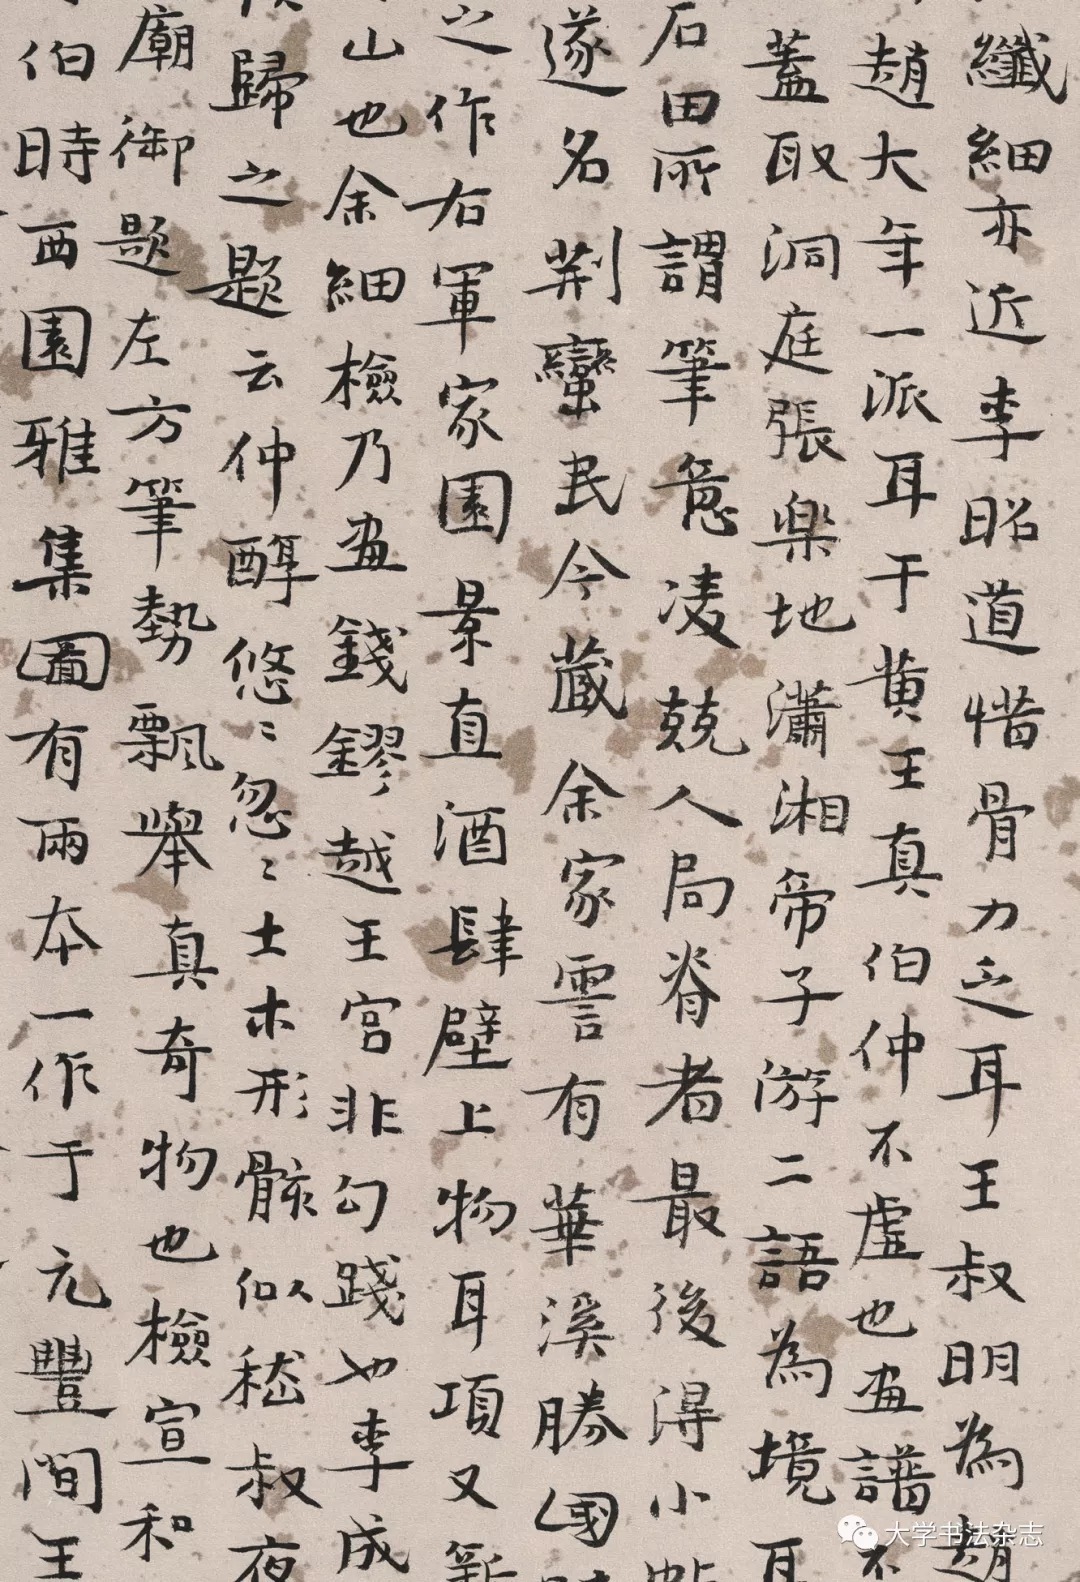 纖細亦近李昭道惜骨力乏耳王叔明為趙
趙大年一派耳于黄王真伯仲不虛也畫譜不
蓋取洞庭張樂地瀟湘帝子游二語為境耳
石田所謂筆意凌兢人局脊者最後得小帖
遂名荆蠻民今藏余家雲有華溪勝國時
之作右軍家園景直酒肆壁上物耳項又新
山也余細檢乃畫錢鏐越王宮非勾踐也李成
歸之題云仲醇悠〻忽〻土木形骸似嵇叔夜
廟御題左方筆勢飄舉真奇物也檢宣和
伯時西園雅集圖有兩本一作于元豐間王
大学书法杂志